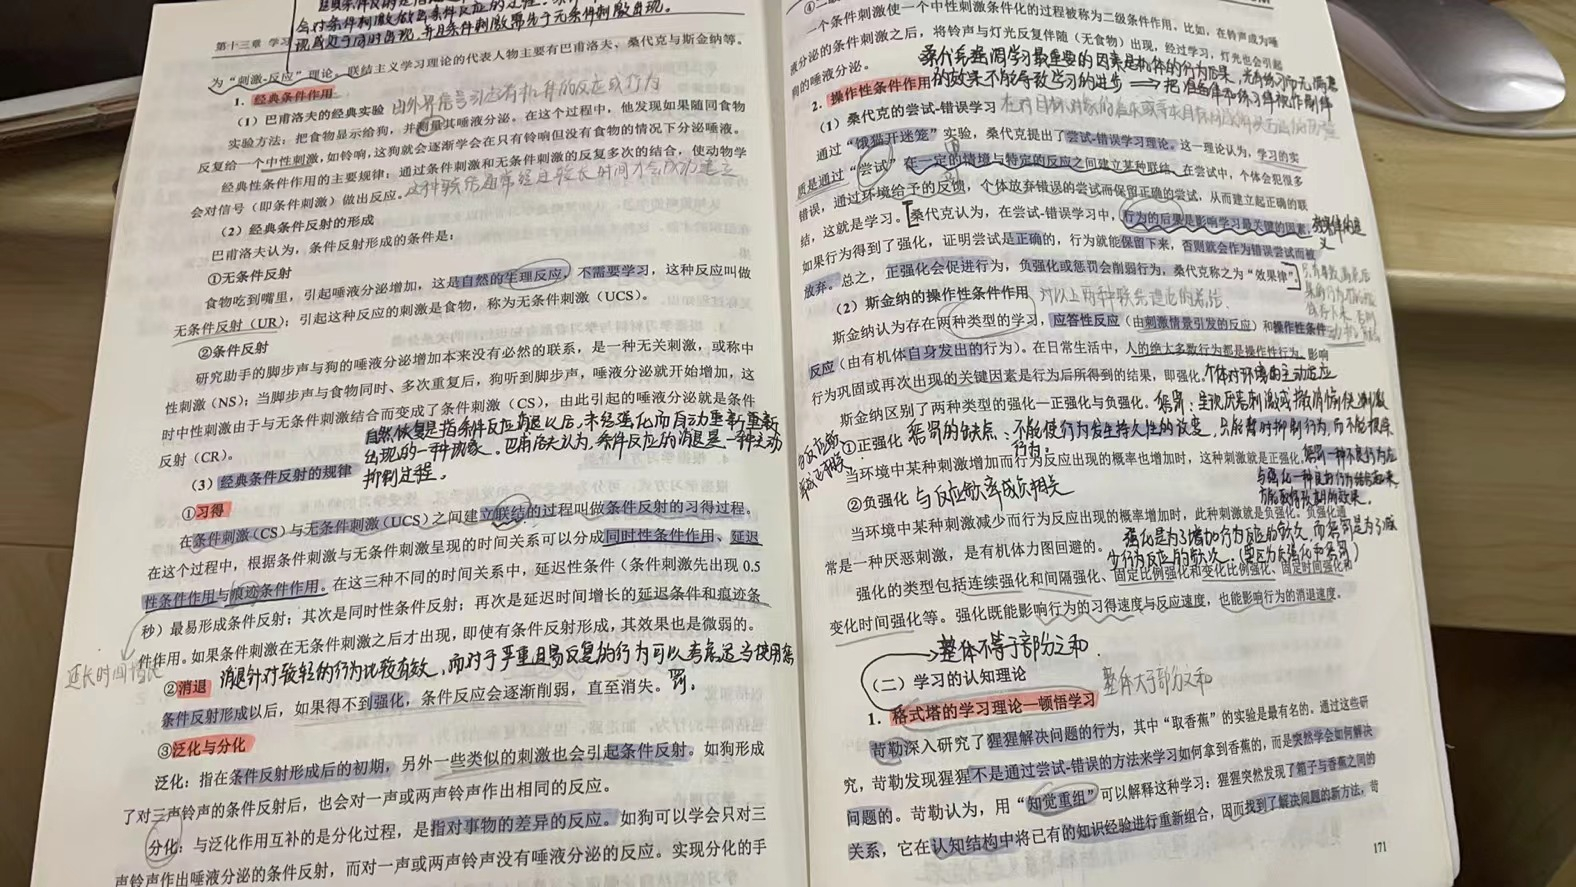 会对条件刺激做出条件反应的过程
现或处于同时出现，并且条件刺激略先于无条件刺激出现。
第十三章 学习
为“刺激-反应”理论。联结主义学习理论的代表人物主要有巴甫洛夫、桑代克与斯金纳等。
1. 经典条件作用
（1）巴甫洛夫的经典实验
实验方法：把食物显示给狗，并测量其唾液分泌。在这个过程中，他发现如果随同食物
反复给一个中性刺激，如铃响，这狗就会逐渐学会在只有铃响但没有食物的情况下分泌唾液。
经典性条件作用的主要规律：通过条件刺激和无条件刺激的反复多次的结合，使动物学
会对信号（即条件刺激）做出反应。这种联结通常经过较长时间才会成功建立
（2）经典条件反射的形成
巴甫洛夫认为，条件反射形成的条件是：
①无条件反射
食物吃到嘴里，引起唾液分泌增加，这是自然的生理反应，不需要学习，这种反应叫做
无条件反射（UR）；引起这种反应的刺激是食物，称为无条件刺激（UCS）。
②条件反射
研究助手的脚步声与狗的唾液分泌增加本来没有必然的联系，是一种无关刺激，或称中
性刺激（NS）；当脚步声与食物同时、多次重复后，狗听到脚步声，唾液分泌就开始增加，这
时中性刺激由于与无条件刺激结合而变成了条件刺激（CS），由此引起的唾液分泌就是条件
反射（CR）。
自然恢复是指条件反应消退以后，未经强化而自动重新重新
出现的一种现象。巴甫洛夫认为，条件反应的消退是一种主动
抑制过程。
（3）经典条件反射的规律
①习得
在条件刺激（CS）与无条件刺激（UCS）之间建立联结的过程叫做条件反射的习得过程。
在这个过程中，根据条件刺激与无条件刺激呈现的时间关系可以分成同时性条件作用、延迟
性条件作用与痕迹条件作用。在这三种不同的时间关系中，延迟性条件（条件刺激先出现 0.5
秒）最易形成条件反射；其次是同时性条件反射；再次是延迟时间增长的延迟条件和痕迹条
件作用。如果条件刺激在无条件刺激之后才出现，即使有条件反射形成，其效果也是微弱的。
延长时间
②消退 消退针对较轻的行为比较有效，而对于严重且易反复的行为可以考虑适当使用惩
罚。
条件反射形成以后，如果得不到强化，条件反应会逐渐削弱，直至消失。
③泛化与分化
泛化：指在条件反射形成后的初期，另外一些类似的刺激也会引起条件反射。如狗形成
了对三声铃声的条件反射后，也会对一声或两声铃声作出相同的反应。
分化：与泛化作用互补的是分化过程，是指对事物的差异的反应。如狗可以学会只对三
声铃声作出唾液分泌的条件反射，而对一声或两声铃声没有唾液分泌的反应。实现分化的手
一个条件刺激使一个中性刺激条件化的过程被称为二级条件作用。比如，在铃声成为唾
液分泌的条件刺激之后，将铃声与灯光反复伴随（无食物）出现，经过学习，灯光也会引起
狗的唾液分泌。
桑代克强调学习最重要的因素是机体的行为后果，光有练习而无满意
的效果不能导致学习的进步 → 把准备律和练习律
2. 操作性条件作用
（1）桑代克的尝试-错误学习
通过“饿猫开迷笼”实验，桑代克提出了尝试-错误学习理论。这一理论认为，学习的实
质是通过“尝试”在一定的情境与特定的反应之间建立某种联结。在尝试中，个体会犯很多
错误，通过环境给予的反馈，个体放弃错误的尝试而保留正确的尝试，从而建立起正确的联
结，这就是学习。桑代克认为，在尝试-错误学习中，行为的后果是影响学习最关键的因素。
如果行为得到了强化，证明尝试是正确的，行为就能保留下来，否则就会作为错误尝试而被
放弃。总之，正强化会促进行为，负强化或惩罚会削弱行为，桑代克称之为“效果律”。
（2）斯金纳的操作性条件作用 对以上两种联结理论的总结
斯金纳认为存在两种类型的学习，应答性反应（由刺激情景引发的反应）和操作性条件
反应（由有机体自身发出的行为）。在日常生活中，人的绝大多数行为都是操作性行为。影响
行为巩固或再次出现的关键因素是行为后所得到的结果，即强化。个体对环境的主动适应
斯金纳区别了两种类型的强化—正强化与负强化。惩罚：呈现厌恶刺激或撤消愉快刺激
①正强化 惩罚的缺点：不能使行为发生持久性的改变，只能暂时抑制行为，而不能根除
行为。
当环境中某种刺激增加而行为反应出现的概率也增加时，这种刺激就是正强化。
惩罚一种不良行为应
与强化一种良好行为结合起来，
方能取得预期的效果。
②负强化 与反应频率成负相关
当环境中某种刺激减少而行为反应出现的概率增加时，此种刺激就是负强化。负强化通
常是一种厌恶刺激，是有机体力图回避的。
强化是为了增加行为反应的频次，而惩罚是为了减
少行为反应的频次。（要区分负强化和惩罚）
强化的类型包括连续强化和间隔强化、固定比例强化和变化比例强化、固定时间强化和
变化时间强化等。强化既能影响行为的习得速度与反应速度，也能影响行为的消退速度。
整体不等于部分之和.
（二）学习的认知理论
整体大于部分之和
1. 格式塔的学习理论—顿悟学习
苛勒深入研究了猩猩解决问题的行为，其中“取香蕉”的实验是最有名的。通过这些研
究，苛勒发现猩猩不是通过尝试-错误的方法来学习如何拿到香蕉的，而是突然学会如何解决
问题的。苛勒认为，用“知觉重组”可以解释这种学习：猩猩突然发现了箱子与香蕉之间的
关系，它在认知结构中将已有的知识经验进行重新组合，因而找到了解决问题的新方法，苛
171